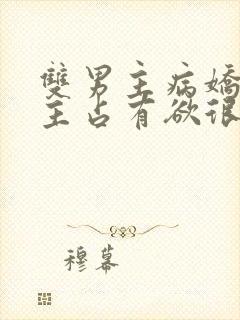 雙男主病嬌
主占有欲很
穆幕